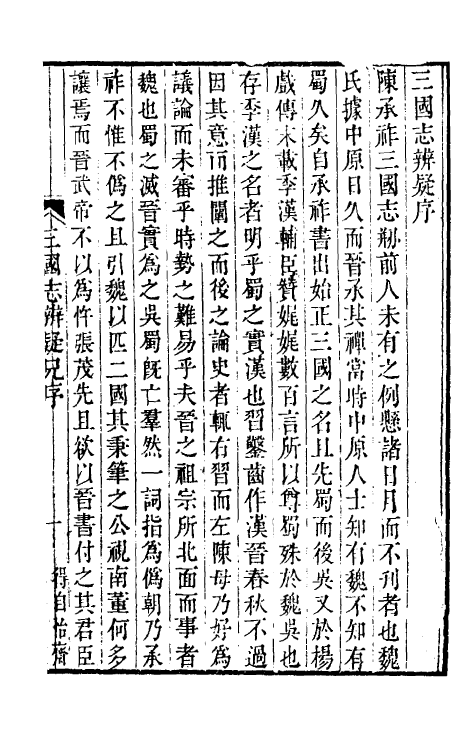 三國志辨疑序
陳承祚三國志刱前人未有之例懸諸日月而不刊者也魏
氏據中原日久而晉承其禪當時中原人士知有魏不知有
蜀久矣自承祚書出始正三國之名且先蜀而後吳又於楊
戲傳末載季漢輔臣贊娓娓數百言所以尊蜀殊於魏吳也
存季漢之名者明乎蜀之實漢也習鑿齒作漢晉春秋不過
因其意而推闡之而後之論史者輒右習而左陳毋乃好為
議論而未審乎時勢之難易乎夫晉之祖宗所北面而事者
魏也蜀之滅晉實為之吳蜀旣亡羣然一詞指為偽朝乃承
祚不惟不偽之且引魏以匹二國其秉筆之公視南董何多
讓焉而晉武帝不以為忤張茂先且欲以晉書付之其君臣
三國志辨疑序
一
得自怡齋